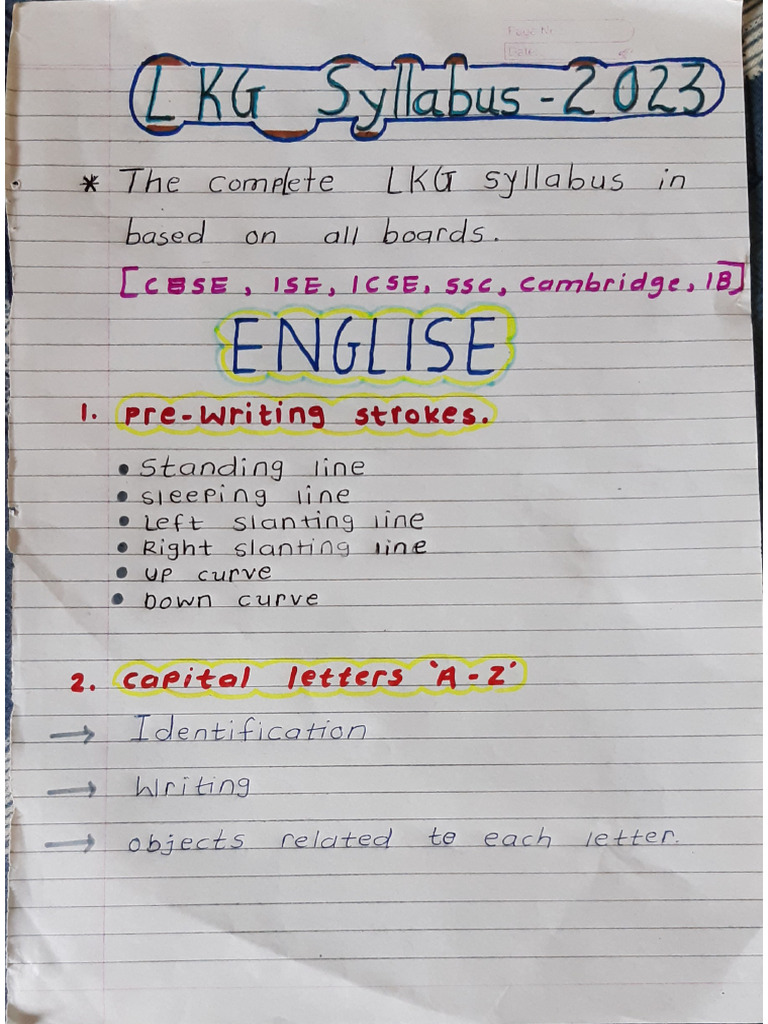 Page No.
Date
LKG Syllabus - 2023
* The complete LKG syllabus in
based on all boards.
[CBSE, ISE, ICSE, SSC, Cambridge, IB]
ENGLISE
1. Pre-Writing strokes.
• Standing line
• Sleeping line
• Left slanting line
• Right slanting line
• UP curve
• Down curve
2. Capital letters 'A-Z'
→ Identification
→ Writing
→ objects related to each letter.